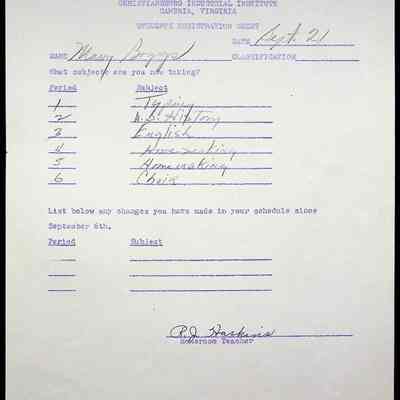 CHRISTIANSBURG INDUSTRIAL INSTITUTE
CAMBRIA, VIRGINIA
STUDENTS REGISTRATION SHEET
DATE Sept. 21
NAME Mary Boggs CLASSIFICATION
What subjects are you now taking?
Period Subject
1 Typing
2 U.S. History
3 English
4 Homemaking
5 Homemaking
6 Choir
List below any changes you have made in your schedule since
September 6th.
Period Subject
R.J. Haskins
Homeroom Teacher